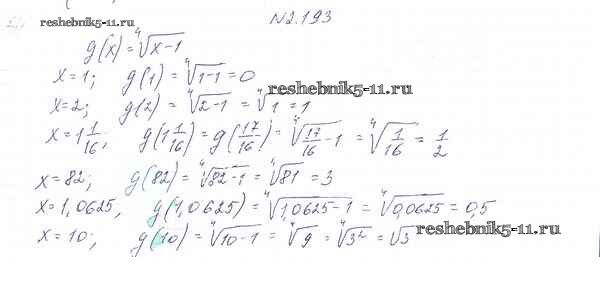 reshebnik5-11.ru
N2.193
g(x) = ⁴√x-1
x=1; g(1) = ⁴√1-1 = 0
reshebnik5-11.ru
x=2; g(2) = ⁴√2-1 = ⁴√1 = 1
x=1 1/16; g(1 1/16) = g(17/16) = ⁴√17/16-1 = ⁴√1/16 = 1/2
x=82; g(82) = ⁴√82-1 = ⁴√81 = 3
x=1,0625, g(1,0625) = ⁴√1,0625-1 = ⁴√0,0625 = 0,5
x=10; g(10) = ⁴√10-1 = ⁴√9 = ⁴√3² = √3
reshebnik5-11.ru